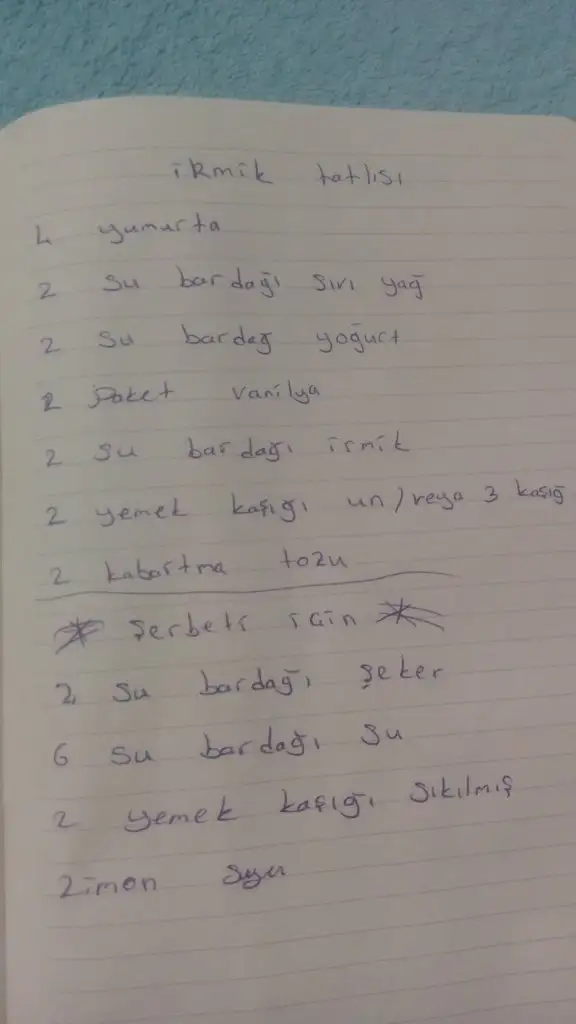 iRmik tatlısı
4 yumurta
2 su bardağı sıvı yağ
2 su bardağ yoğurt
2 Paket vanilya
2 su bardağı irmik
2 yemek kaşığı un / veya 3 kaşığ
2 kabartma tozu
* Şerbeti için *
2 su bardağı şeker
6 su bardağı su
2 yemek kaşığı sıkılmış
limon suyu